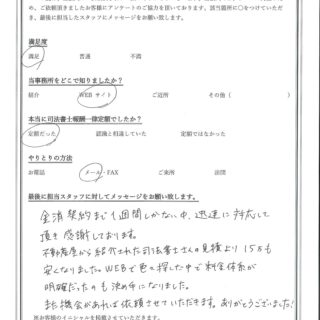 め、ご依頼頂きましたお客様にアンケートのご協力を頂いております。該当箇所に○をつけていただ
き、最後に担当したスタッフにメッセージをお願い致します。
満足度
満足 普通 不満
当事務所をどこで知りましたか？
紹介 WEB サイト ご近所 その他（ ）
本当に司法書士報酬一律定額でしたか？
定額だった 認識と相違していた 定額ではなかった
やりとりの方法
お電話 メール・FAX ご来所 訪問
最後に担当スタッフに対してメッセージをお願い致します。
金消契約まで1週間しかない中、迅速に対応して
頂き感謝しております。
不動産屋から紹介された司法書士さんの見積より15万も
安くなりました。WEBで色々探した中で料金体系が
明確だったのも決め手になりました。
また機会があれば依頼させていただきます。ありがとうございました!
※お客様のイニシャルを掲載させていただきます。